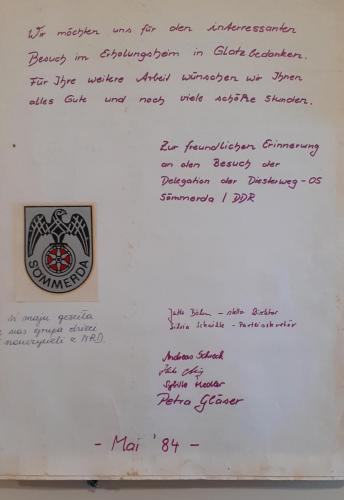 Wir möchten uns für den interressanten
Besuch im Erholungsheim in Glatz bedanken.
Für Ihre weitere Arbeit wünschen wir Ihnen
alles Gute und noch viele schöne Stunden.
Zur freundlichen Erinnerung
an den Besuch der
Delegation der Diesterweg-OS
Sömmerda / DDR
SÖMMERDA
W maju gościła
u nas grupa dzieci
nauczycieli z NRD.
Jutta Böhm - stellv. Direktor
Silvia - Parteisekretär
Andreas Schoch
Sybille Fiedler
Petra Gläser
- Mai '84 -